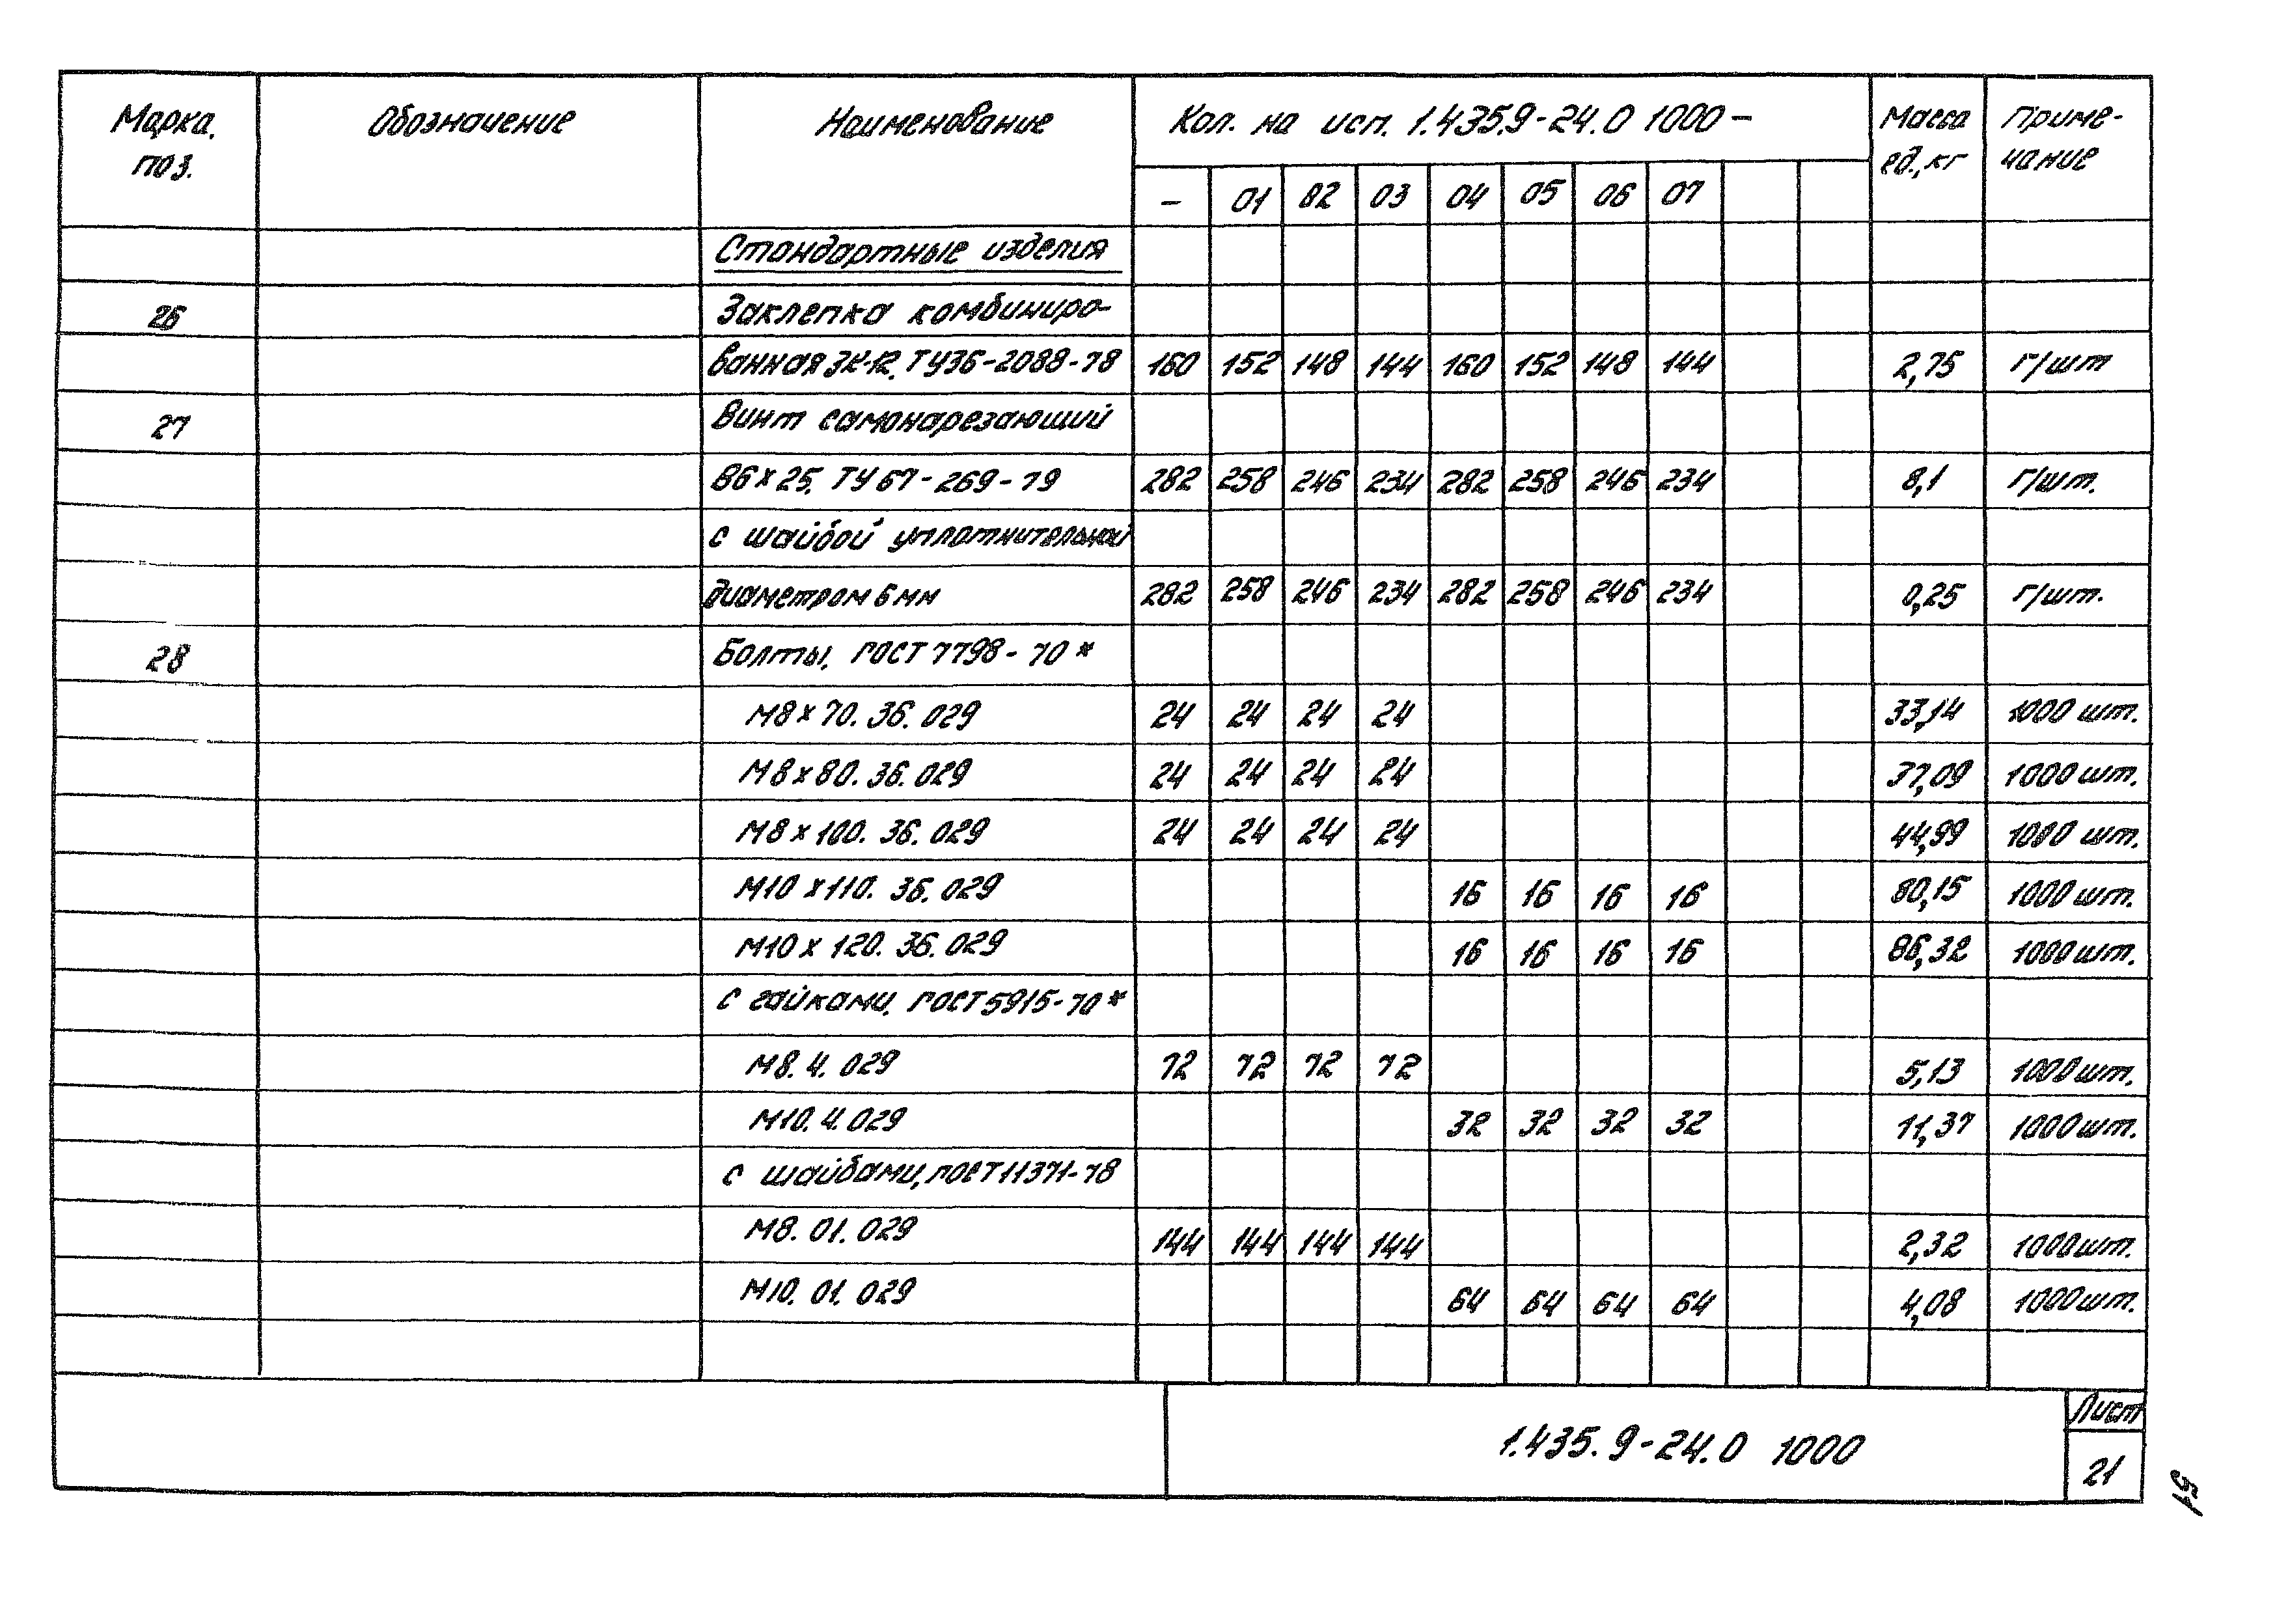 Марка, Обозначение Наименование Кол. на исп. 1.435.9-24.0 1000- Масса Приме-
поз. ед., кг чание
- 01 02 03 04 05 06 07
Стандартные изделия
26 Заклепка комбиниро-
ванная ЗК-12, ТУ36-2088-78 160 152 148 144 160 152 148 144 2,75 г/шт
27 Винт самонарезающий
В6х25, ТУ 67-269-79 282 258 246 234 282 258 246 234 8,1 г/шт.
с шайбой уплотнительной
диаметром 6 мм 282 258 246 234 282 258 246 234 0,25 г/шт.
28 Болты, ГОСТ 7798-70*
М8х70.36.029 24 24 24 24 33,14 1000 шт.
М8х80.36.029 24 24 24 24 37,09 1000 шт.
М8х100.36.029 24 24 24 24 44,99 1000 шт.
М10х110.36.029 16 16 16 16 80,15 1000 шт.
М10х120.36.029 16 16 16 16 86,32 1000 шт.
с гайками, ГОСТ 5915-70*
М8.4.029 72 72 72 72 5,13 1000 шт.
М10.4.029 32 32 32 32 11,37 1000 шт.
с шайбами, ГОСТ 11371-78
М8.01.029 144 144 144 144 2,32 1000 шт.
М10.01.029 64 64 64 64 4,08 1000 шт.
1.435.9-24.0 1000
Лист
21
51